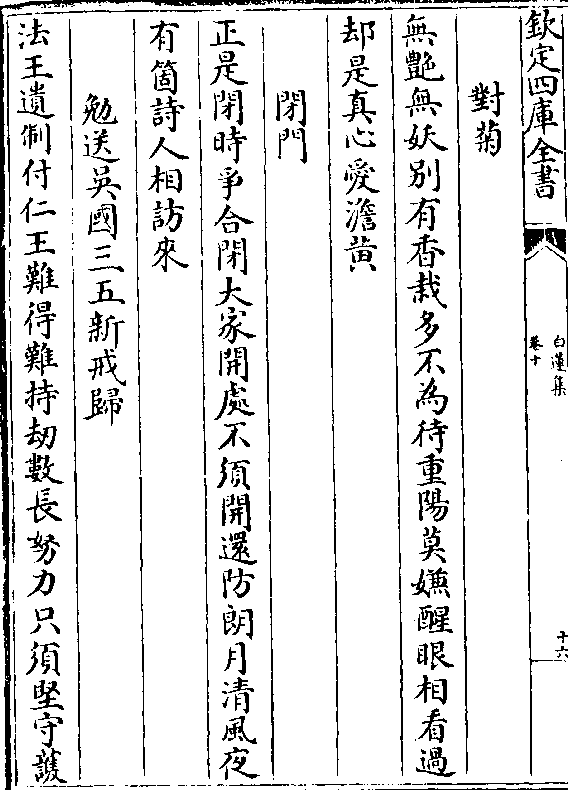 欽定四庫全書
白蓮集
卷十
十六
對菊
無艷無妖别有香栽多不為待重陽莫嫌醒眼相看過
却是真心愛澹黄
閉門
正是閉時爭合閉大家開處不須開還防朗月清風夜
有箇詩人相訪來
勉送吳國三五新戒歸
法王遺制付仁王難得難持劫數長努力只須堅守護